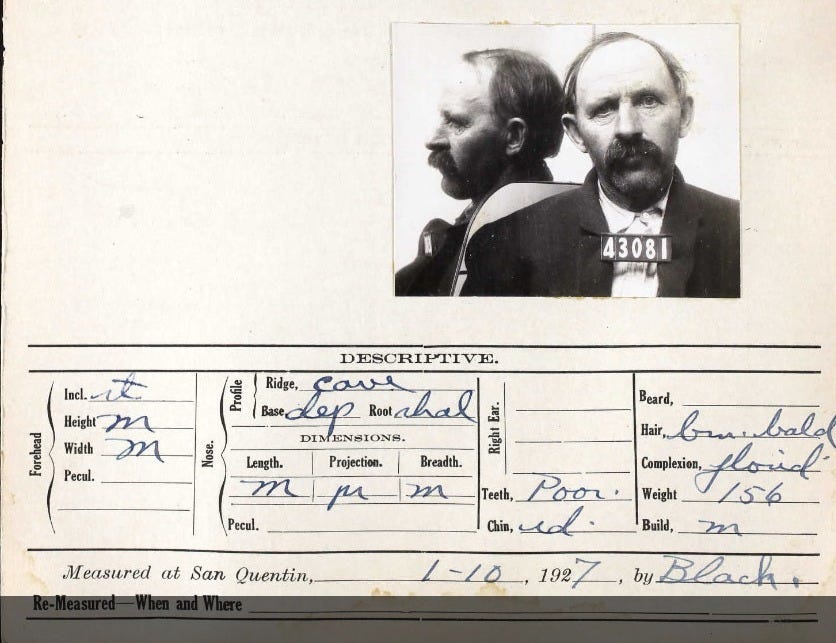 43081
DESCRIPTIVE.
Forehead
Incl. st
Height m
Width m
Pecul.
Nose.
Profile
Ridge, cave
Base dep Root shal
DIMENSIONS.
Length. Projection. Breadth.
m m
Pecul.
Right Ear.
Teeth, Poor.
Chin,
Beard,
Hair, bald
Complexion, florid
Weight 156
Build, m
Measured at San Quentin, 1-10, 1927, by Black.
Re-Measured—When and Where